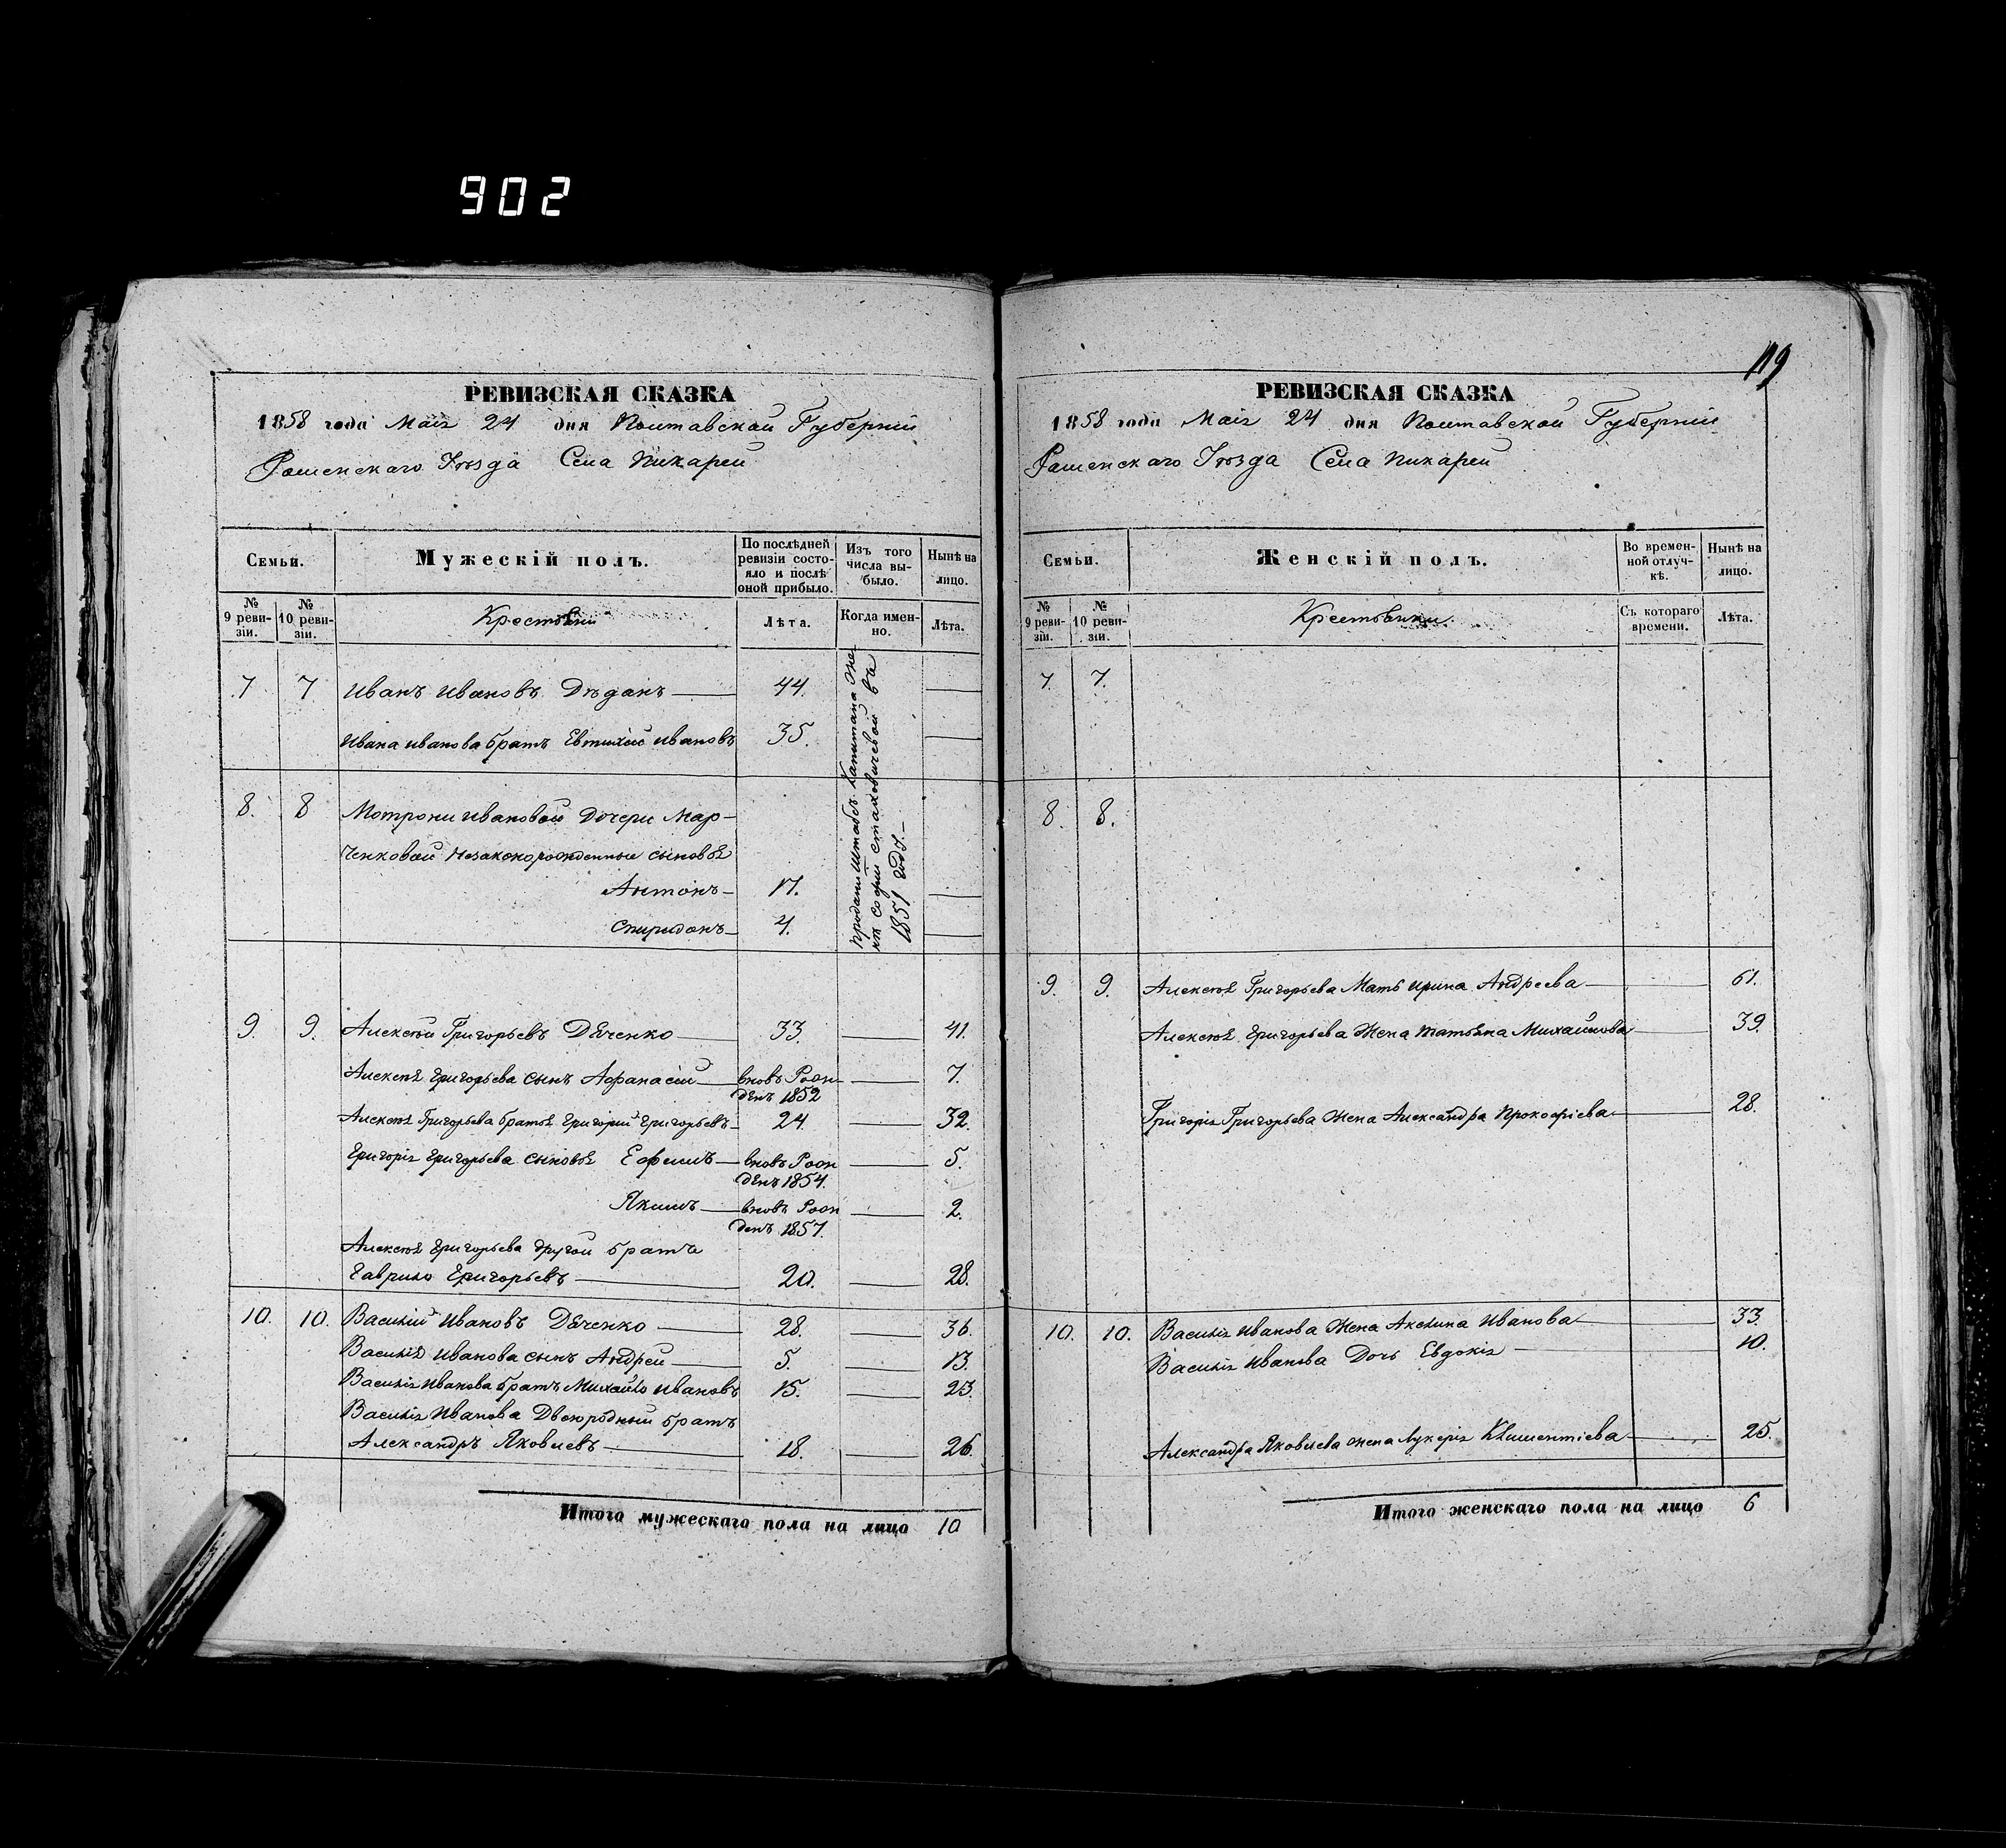 902
119
РЕВИЗСКАЯ СКАЗКА
1858 года Маія 24 дня Полтавской Губерніи
Уѣзда Села Пихарей
Семьи.
Мужескій полъ.
По послѣдней ревизіи состояло и послѣ оной прибыло.
Изъ того числа выбыло.
Нынѣ на лицо.
№ 9 ревизіи.
№ 10 ревизіи.
Крестьяни
Лѣта.
Когда именно.
Лѣта.
7 7 Иванъ Ивановъ Дѣданъ 44.
Ивана Иванова братъ Евтихій Ивановъ 35.
8. 8 Мотрони Ивановой Дочери Мар-
ченковой Незаконорожденные сыновья
Антонъ 17.
Спиридонъ 4.
Проданы Штабсъ Капитана Же-
нѣ Софіи Стаховичевой въ
1851 году.
9. 9. Алексѣй Григорьевъ Дяченко 33. 41.
Алексѣя Григорьева сынъ Афанасій вновь Рож- 7.
денъ 1852
Алексѣя Григорьева братъ Григорій Григорьевъ 24. 32.
Григорія Григорьева сыновья Ефимъ вновь Рож 5.
денъ 1854.
Якимъ вновь Рож 2.
денъ 1857.
Алексѣя Григорьева другой братъ
Гаврило Григорьевъ 20. 28.
10. 10. Василій Ивановъ Дяченко 28. 36.
Василія Иванова сынъ Андрей 5. 13.
Василія Иванова братъ Михайло Ивановъ 15. 23.
Василія Иванова Двоюродный братъ
Александръ Яковлевъ 18. 26.
Итого мужескаго пола на лицо 10
РЕВИЗСКАЯ СКАЗКА
1858 года Маія 24 дня Полтавской Губерніи
Уѣзда Села Пихарей
Семьи.
Женскій полъ.
Во временной отлучкѣ.
Нынѣ на лицо.
№ 9 ревизіи.
№ 10 ревизіи.
Крестьянки.
Съ котораго времени.
Лѣта.
7. 7.
8. 8.
9. 9. Алексѣя Григорьева Мать Ирина Андреева 61.
Алексѣя Григорьева Жена Татьяна Михайлова 39.
Григорія Григорьева Жена Александра Прокофіева 28.
10. 10. Василія Иванова Жена Акелина Иванова 33.
Василія Иванова Дочь Евдокія 10.
Александра Яковлева жена Лукерія Климентіева 25.
Итого женскаго пола на лицо 6